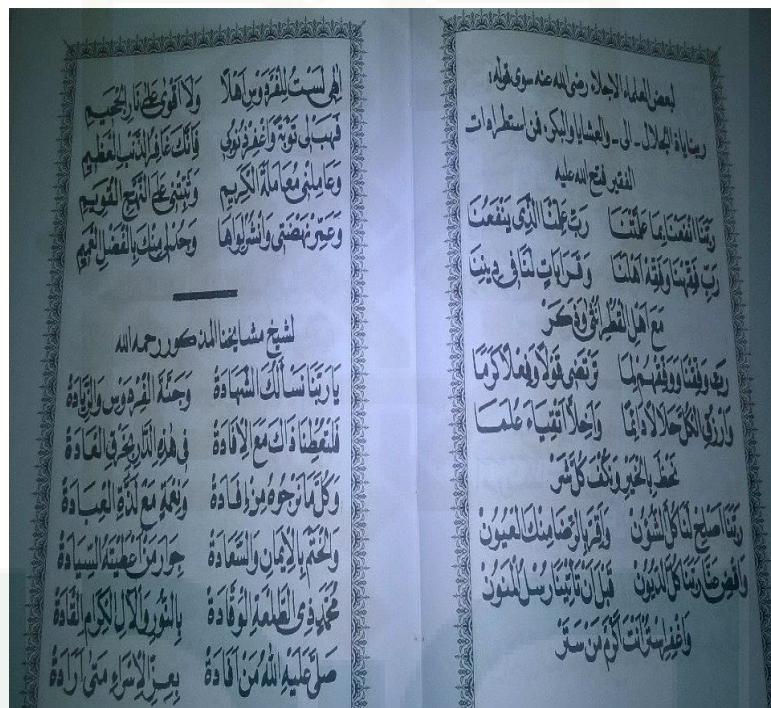 لبعض العلماء الاجلاء رضي الله عنه سوى قوله:
رب ياذا الجلال - الى - والعشايا والبكر، فمن استطرادات
الفقير فتح الله عليه
رَبَّنَا انْفَعْنَا بِمَا عَلَّمْتَنَا رَبِّ عَلِّمْنَا الَّذِى يَنْفَعُنَا
رَبِّ فَقِّهْنَا وَفَقِّهْ اَهْلَنَا وَقَرَابَاتٍ لَنَا فِى دِينِنَا
مَعَ اَهْلِ الْقُطْرِ اُنْثَى وَذَكَرْ
رَبِّ وَفِّقْنَا وَوَفِّقْهُمْ لِمَا تَرْتَضِى قَوْلًا وَفِعْلًا كَرَمًا
وَارْزُقِ الْكُلَّ حَلَالًا دَائِمًا وَاَخِلَّا اَتْقِيَاءَ عُلَمَا
نَحْظَ بِالْخَيْرِ وَنُكْفَ كُلَّ شَرْ
رَبَّنَا اَصْلِحْ لَنَا كُلَّ الشُّؤُنْ وَاَقِرَّ بِالرِّضَا مِنْكَ الْعُيُوْنْ
وَاقْضِ عَنَّا رَبَّنَا كُلَّ الدُّيُوْنْ قَبْلَ اَنْ تَأْتِيَنَا رُسُلُ الْمَنُوْنْ
وَاغْفِرِ اسْتُرْ اَنْتَ اَكْرَمُ مَنْ سَتَرْ
اِلٰهِى لَسْتُ لِلْفِرْدَوْسِ اَهْلًا وَلَا اَقْوٰى عَلٰى نَارِ الْجَحِيمِ
فَهَبْ لِى تَوْبَةً وَاغْفِرْ ذُنُوْبِى فَاِنَّكَ غَافِرُ الذَّنْبِ الْعَظِيْمِ
وَعَامِلْنِى مُعَامَلَةَ الْكَرِيْمِ وَثَبِّتْنِى عَلَى النَّهْجِ الْقَوِيْمِ
وَعَمِّرْ نَهْضَتِى وَانْشُرْ لِوَاهَا وَجُدْ مِنْكَ بِالْفَضْلِ الْعَمِيمِ
لشيخ مشايخنا المذكور رحمه الله
يَا رَبَّنَا نَسْأَلُكَ الشَّهَادَةْ وَجَنَّةَ الْفِرْدَوْسِ وَالزِّيَادَةْ
فَلْتُعْطِنَا ذَاكَ مَعَ الْاِفَادَةْ فِى هٰذِهِ الدَّارِ بِخَرْقِ الْعَادَةْ
وَكُلَّ مَا نَرْجُوْهُ مِنْ اِفَادَةْ وَنِعْمَةٍ مَعَ لَذَّةِ الْعِبَادَةْ
وَالْخَتْمَ بِالْاِيْمَانِ وَالسَّعَادَةْ جِوَارَ مَنْ اَعْطَيْتَهُ السِّيَادَةْ
مُحَمَّدٍ ذِى الطَّلْعَةِ الْوَقَّادَةْ بِالنُّوْرِ وَالْآلِ الْكِرَامِ الْقَادَةْ
صَلَّى عَلَيْهِ اللّٰهُ مَنْ اَفَادَهْ بِعِزِّ الْاِسْرَاءِ مَتٰى اَرَادَهْ